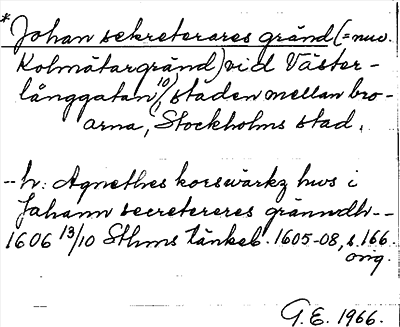 * Johan sekreterares gränd (= nuv.
Kolmätargränd) vid Väster-
långgatan, 10) staden mellan bro-
arna, Stockholms stad.
-- h: Agnethes korswärkz hws i
Johann secretereres gränndh --
1606 13/10 Sthms tänkeb. 1605-08, s. 166.
orig.
G.E. 1966.